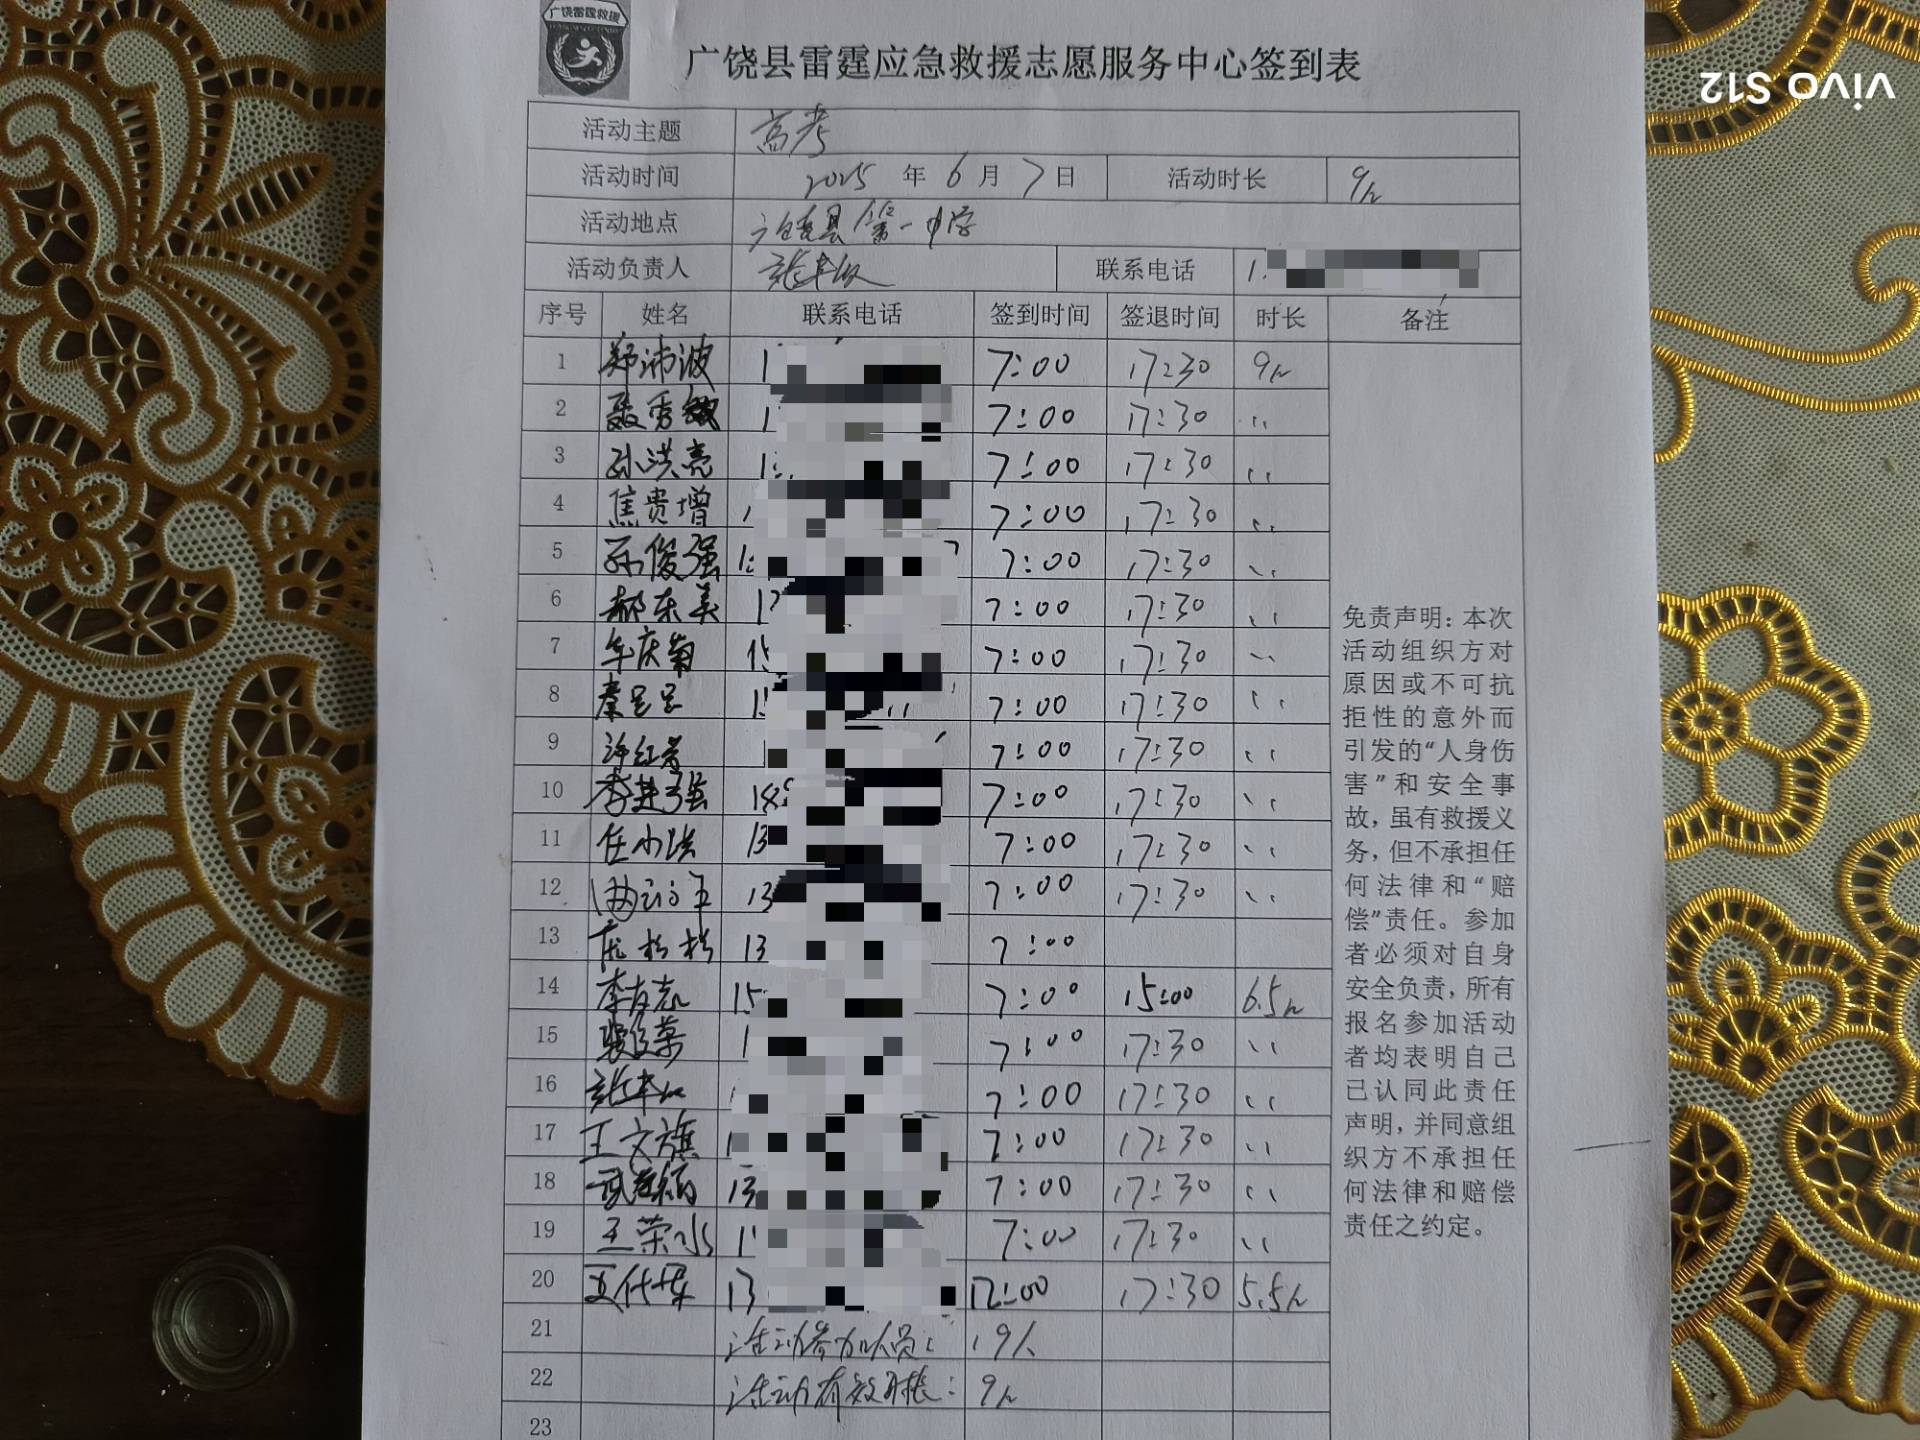 广饶雷霆救援
广饶县雷霆应急救援志愿服务中心签到表
vivo S12
活动主题 高考
活动时间 2025 年 6 月 7 日 活动时长 9h
活动地点 广饶县第一中学
活动负责人 联系电话 1
序号 姓名 联系电话 签到时间 签退时间 时长 备注
1 郑沛波 1 7:00 17:30 9h
2 聂秀 1 7:00 17:30 〃
3 孙洪亮 1 7:00 17:30 〃
4 焦贵增 7:00 17:30 〃
5 孙俊强 1 7:00 17:30 〃
6 郝东美 17 7:00 17:30 〃
7 牟庆菊 15 7:00 17:30 〃
8 秦 1 7:00 17:30 〃
9 许红 7:00 17:30 〃
10 李进强 18 7:00 17:30 〃
11 任小洪 13 7:00 17:30 〃
12 13 7:00 17:30 〃
13 13 7:00
14 李友志 15 7:00 15:00 6.5h
15 荣 1 7:00 17:30 〃
16 7:00 17:30 〃
17 王文旗 1 7:00 17:30 〃
18 13 7:00 17:30 〃
19 王荣水 1 7:00 17:30 〃
20 13 12:00 17:30 5.5h
21 活动参加队员: 19人
22 活动有效时长: 9h
23
免责声明：本次
活动组织方对
原因或不可抗
拒性的意外而
引发的“人身伤
害”和安全事
故，虽有救援义
务，但不承担任
何法律和“赔
偿”责任。参加
者必须对自身
安全负责，所有
报名参加活动
者均表明自己
已认同此责任
声明，并同意组
织方不承担任
何法律和赔偿
责任之约定。